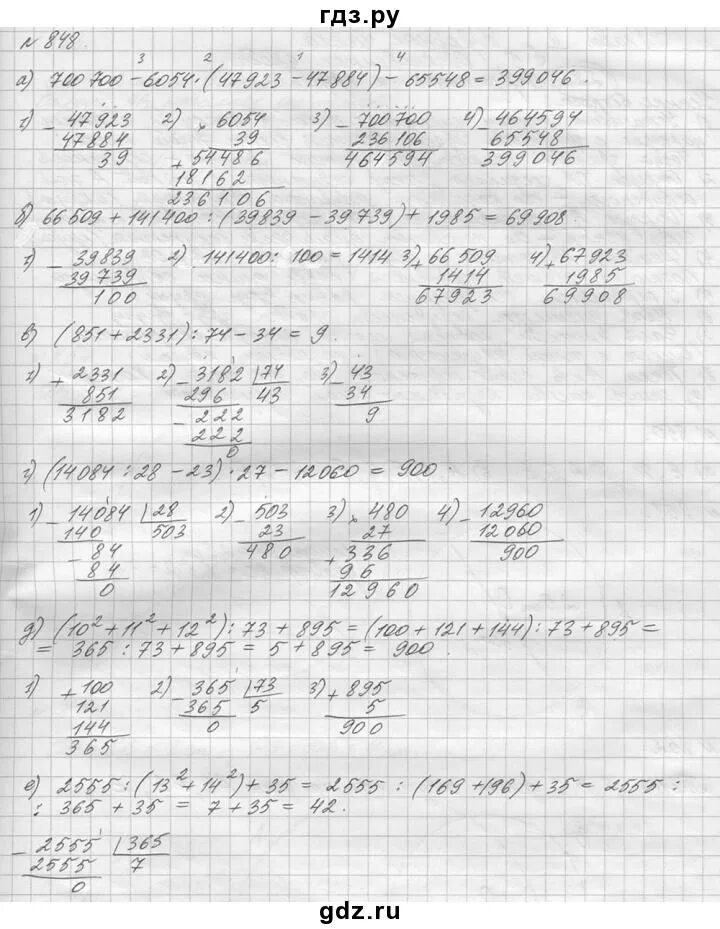 гдз.ру
№ 848.
3 2 1 4
а) 700 700 – 6054 · (47923 – 47884) – 65548 = 399046.
1) – 47923 2) × 6054 3) – 700700 4) – 464594
47884 39 236 106 65548
39 + 54486 464594 399046
18162
236106
б) 66 509 + 141400 : (39839 – 39739) + 1985 = 69908.
1) – 39839 2) 141400 : 100 = 1414 3) + 66 509 4) + 67923
39739 1414 1985
100 67923 69908
в) (851 + 2331) : 74 – 34 = 9.
1) + 2331 2) – 3182 74 3) – 43
851 296 43 34
3182 – 222 9
222
0
г) (14084 : 28 – 23) · 27 – 12060 = 900.
1) – 14084 28 2) – 503 3) × 480 4) – 12960
140 503 23 27 12060
– 84 480 + 336 900
84 96
0 12960
д) (10² + 11² + 12²) : 73 + 895 = (100 + 121 + 144) : 73 + 895 =
= 365 : 73 + 895 = 5 + 895 = 900.
1) + 100 2) – 365 73 3) + 895
121 365 5 5
144 0 900
365
е) 2555 : (13² + 14²) + 35 = 2555 : (169 + 196) + 35 = 2555 :
: 365 + 35 = 7 + 35 = 42.
– 2555 365
2555 7
0
gdz.ru